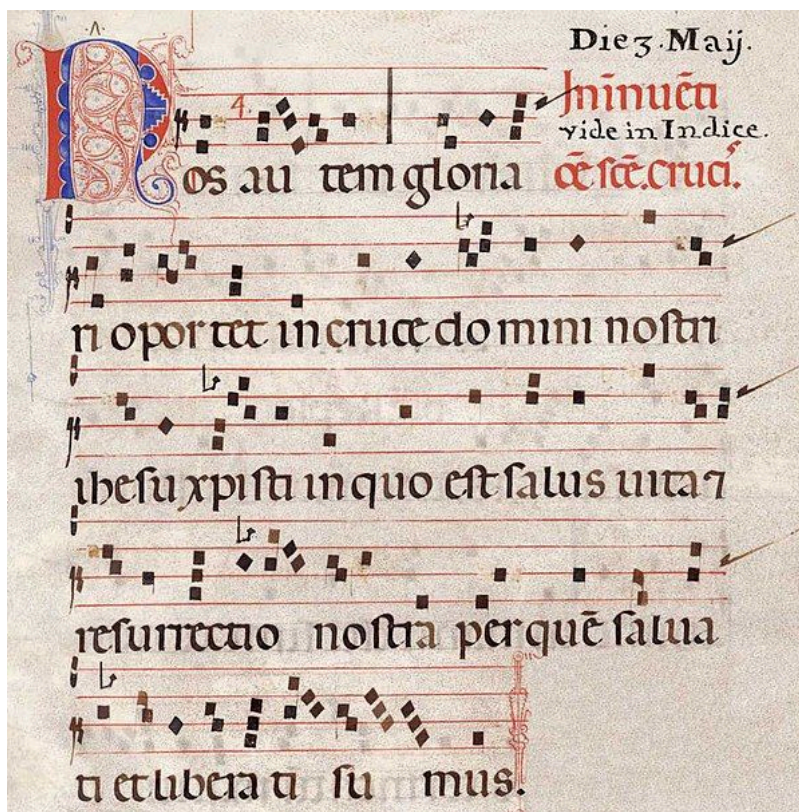 Die 3. Maij.
In inuēti
vide in Indice.
Nos au tem gloria
ōe scē. cruci².
ri oportet in cruce do mini nostri
ihesu xpisti in quo est salus uita ⁊
resurrectio nostra per quē salua
ti et libera ti su mus.